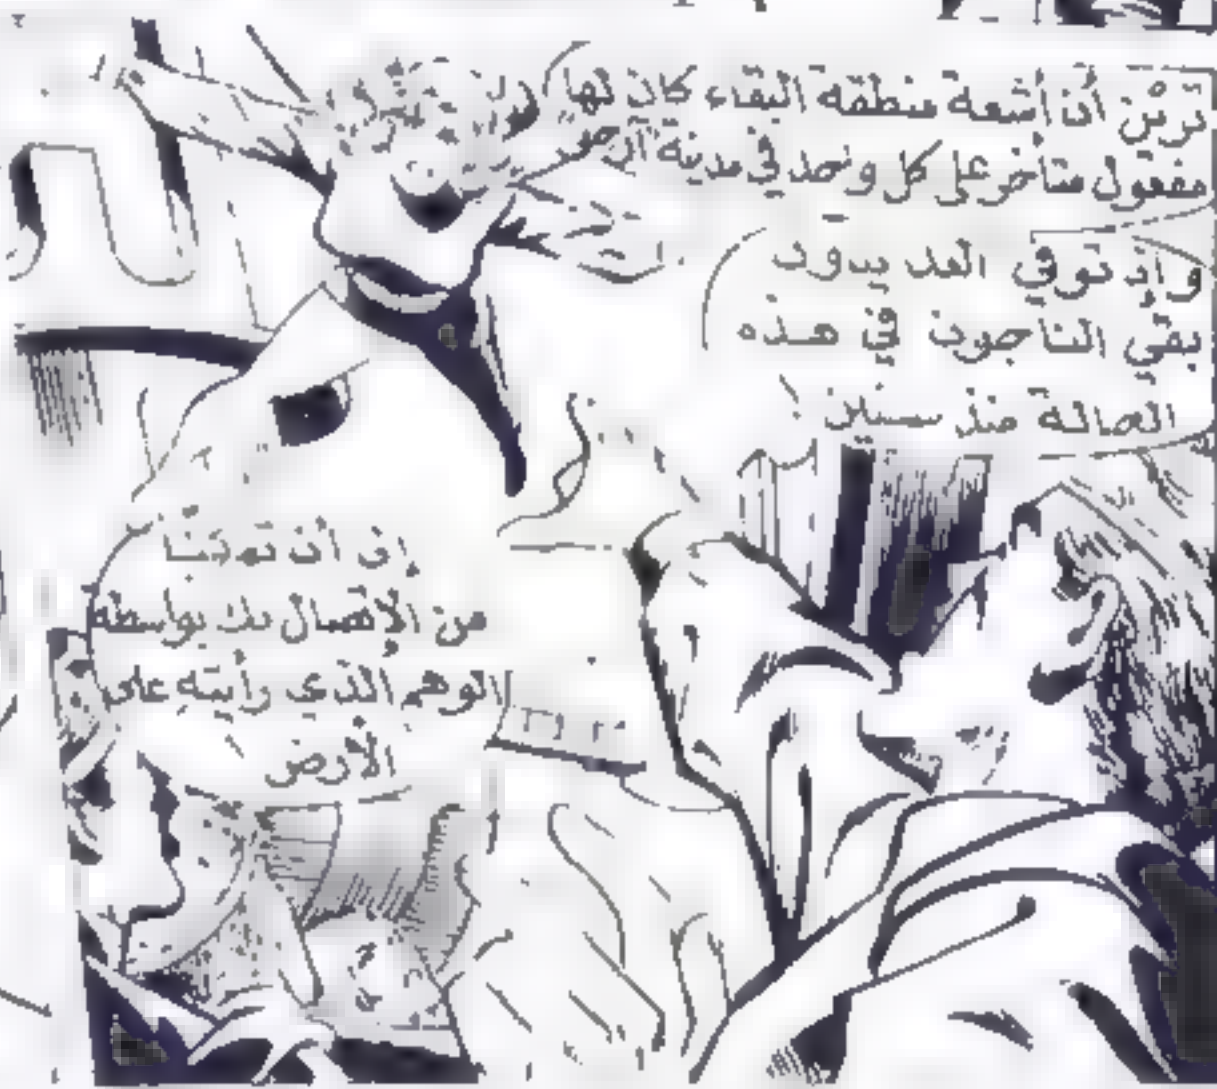 ترين أن أشعة منطقة البقاء كان لها
مفعول متأخر على كل واحد في مدينة
وإذ توفي العديدون
بقي الناجون في هذه
الصالة منذ سنين !
إلى أن تمكنّا
من الإتصال بك بواسطة
الوهم الذي رأيته على
الأرض